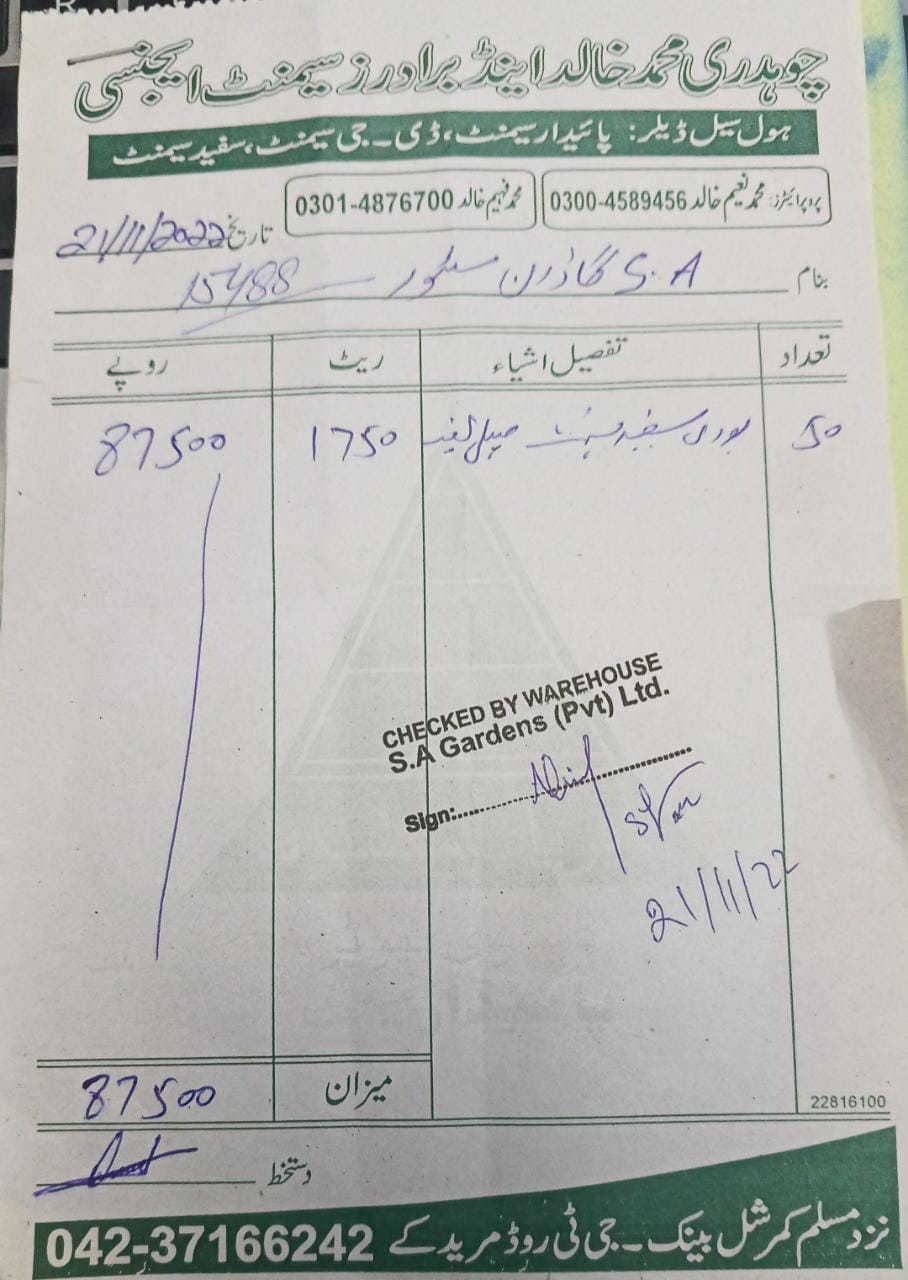 چوہدری محمد خالد اینڈ برادرز سیمنٹ ایجنسی
ہول سیل ڈیلر: پائیدار سیمنٹ، ڈی۔جی سیمنٹ، سفید سیمنٹ
پروپرائیٹرز: محمد نعیم خالد 0300-4589456 محمد فہیم خالد 0301-4876700
تاریخ 21/11/2022
بنام S.A گارڈن سٹور 15488
تعداد تفصیل اشیاء ریٹ روپے
50 بوری سفید سیمنٹ 1750 87500
CHECKED BY WAREHOUSE
S.A Gardens (Pvt) Ltd.
Sign:
21/11/22
میزان 87500
22816100
دستخط
نزد مسلم کمرشل بینک۔ جی ٹی روڈ مریدکے 042-37166242